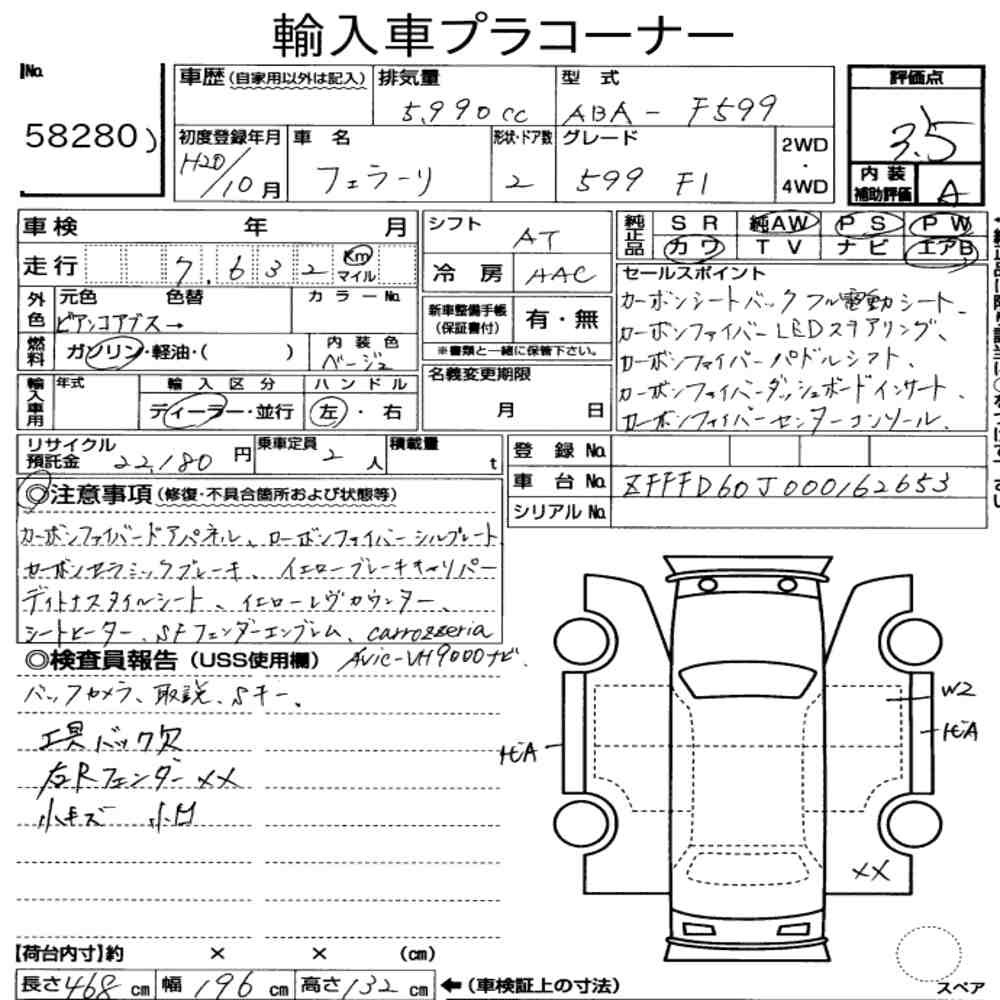 輸入車プラコーナー
No.
58280)
車歴(自家用以外は記入)
排気量
5,990cc
型 式
ABA - F599
初度登録年月
H20/10月
車 名
フェラーリ
形状・ドア数
2
グレード
599 F1
2WD
・
4WD
評価点
3.5
内装
補助評価
A
車検 年 月
走行 7,632 Km
マイル
シフト
AT
冷房 AAC
純正品
SR 純AW PS PW
カワ TV ナビ エアB
外色
元色 色替
カラーNo.
ビアンコアブス→
燃料
ガソリン・軽油・( )
内装色
ベージュ
新車整備手帳
(保証書付)
有・無
※書類と一緒に保管下さい。
輸入車用
年式
輸入区分
ハンドル
ディーラー・並行
左・右
名義変更期限
月 日
セールスポイント
カーボンシートバック フル電動シート、
カーボンファイバーLEDステアリング、
カーボンファイバーパドルシフト、
カーボンファイバーダッシュボードインサート、
カーボンファイバーセンターコンソール、
リサイクル
預託金 22,180 円
乗車定員 2 人
積載量 t
登録No.
車台No. ZFFFD60J000162653
シリアルNo.
◎注意事項(修復・不具合箇所および状態等)
カーボンファイバードアパネル、カーボンファイバーシルプレート
カーボンセラミックブレーキ、イエローブレーキキャリパー
デイトナスタイルシート、イエローレヴカウンター、
シートヒーター、SFフェンダーエンブレム、carrozzeria
◎検査員報告(USS使用欄) AVIC-VH9000ナビ、
バックカメラ、取説、Sキー、
工具バック欠
右Rフェンダー××
小キズ 小凹
W2
ﾓﾋﾞA
ﾓﾋﾞA
××
スペア
【荷台内寸】約 × × (cm)
長さ468cm 幅196cm 高さ132cm ←(車検証上の寸法)